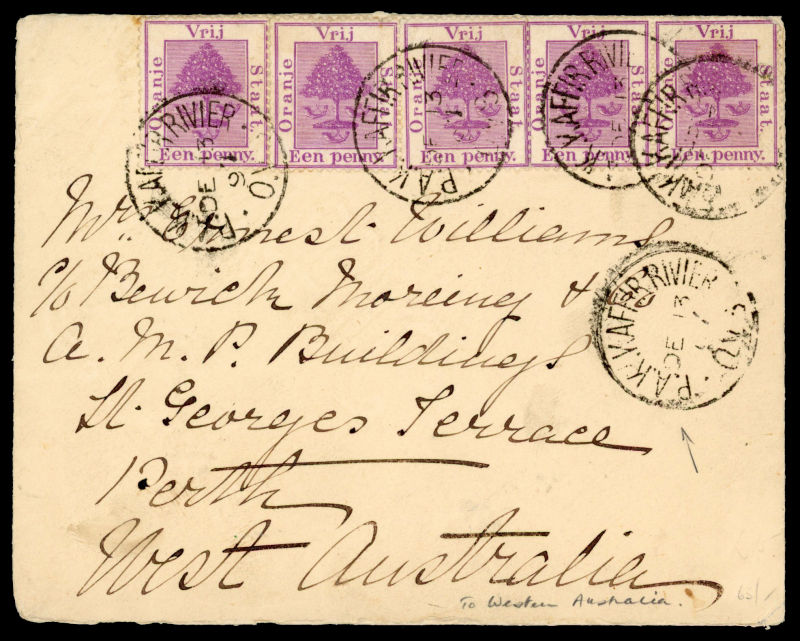 Vrij Vrij Vrij Vrij Vrij
Oranje Staat. Oranje Staat. Oranje Staat. Oranje Staat. Oranje Staat.
Een penny. Een penny. Een penny. Een penny. Een penny.
P.A.K. KAFFIR RIVIER
DE 13
P.A.K. KAFFIR RIVIER
P.A.K. KAFFIR RIVI
P.A.K. KAFFIR
Mr Ernest Williams
c/o Bewick Moreing & Co
A. M. P. Buildings
St. Georges Terrace
Perth
West Australia
P.A.K. KAFFIR RIVIER
DE 13
To Western Australia.